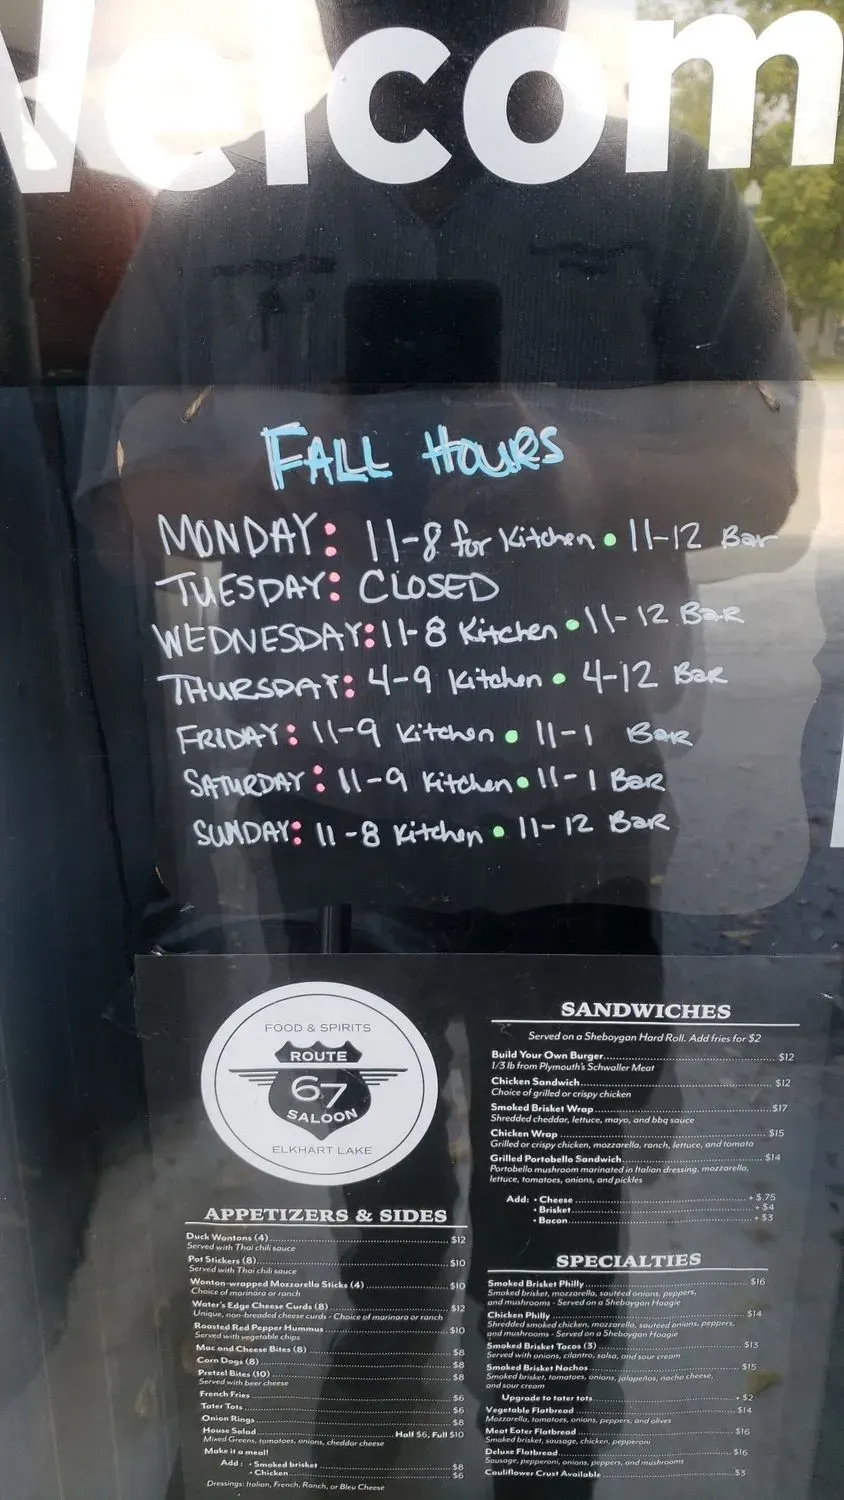 Welcom
FALL HOURS
MONDAY: 11-8 for Kitchen • 11-12 Bar
TUESDAY: CLOSED
WEDNESDAY: 11-8 Kitchen • 11-12 Bar
THURSDAY: 4-9 Kitchen • 4-12 Bar
FRIDAY: 11-9 Kitchen • 11-1 Bar
SATURDAY: 11-9 Kitchen • 11-1 Bar
SUNDAY: 11-8 Kitchen • 11-12 Bar
FOOD & SPIRITS
ROUTE
67
SALOON
ELKHART LAKE
APPETIZERS & SIDES
Duck Wontons (4) $12
Served with Thai chili sauce
Pot Stickers (8) $10
Served with Thai chili sauce
Wonton-wrapped Mozzarella Sticks (4) $10
Choice of marinara or ranch
Water's Edge Cheese Curds (8) $12
Unique, non-breaded cheese curds - Choice of marinara or ranch
Roasted Red Pepper Hummus $10
Served with vegetable chips
Mac and Cheese Bites (8) $8
Corn Dogs (8) $8
Pretzel Bites (10) $8
Served with beer cheese
French Fries $6
Tater Tots $6
Onion Rings $8
House Salad Half $6, Full $10
Mixed Greens, tomatoes, onions, cheddar cheese
Make it a meal!
Add: • Smoked brisket $8
• Chicken $6
Dressings: Italian, French, Ranch, or Bleu Cheese
SANDWICHES
Served on a Sheboygan Hard Roll. Add fries for $2
Build Your Own Burger $12
1/3 lb from Plymouth's Schwaller Meat
Chicken Sandwich $12
Choice of grilled or crispy chicken
Smoked Brisket Wrap $17
Shredded cheddar, lettuce, mayo, and bbq sauce
Chicken Wrap $15
Grilled or crispy chicken, mozzarella, ranch, lettuce, and tomato
Grilled Portobello Sandwich $14
Portobello mushroom marinated in Italian dressing, mozzarella,
lettuce, tomatoes, onions, and pickles
Add: • Cheese + $.75
• Brisket + $4
• Bacon + $3
SPECIALTIES
Smoked Brisket Philly $16
Smoked brisket, mozzarella, sautéed onions, peppers,
and mushrooms - Served on a Sheboygan Hoagie
Chicken Philly $14
Shredded smoked chicken, mozzarella, sautéed onions, peppers,
and mushrooms - Served on a Sheboygan Hoagie
Smoked Brisket Tacos (3) $13
Served with onions, cilantro, salsa, and sour cream
Smoked Brisket Nachos $15
Smoked brisket, tomatoes, onions, jalapeños, nacho cheese,
and sour cream
Upgrade to tater tots + $2
Vegetable Flatbread $14
Mozzarella, tomatoes, onions, peppers, and olives
Meat Eater Flatbread $16
Smoked brisket, sausage, chicken, pepperoni
Deluxe Flatbread $16
Sausage, pepperoni, onions, peppers, and mushrooms
Cauliflower Crust Available $3